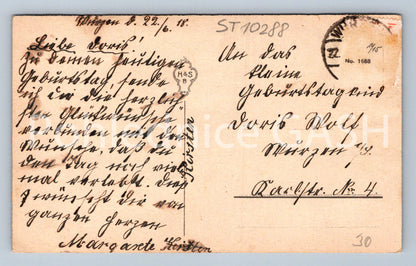 Wurzen d. 22/6. 18.
Liebe Doris!
Zu deinem heutigen
Geburtstag, sende
ich dir die herzlich-
sten Glückwünsche
verbunden mit
Wunsche, daß du
den Tag noch viel-
mal verlebst. Dies
wünscht dir von
ganzen Herzen
Margarete Kirsten
Kirsten
H&S
B
ST10288
No. 1688
An das
kleine
Geburtstagskind
Doris Wolf
Wurzen i/S.
Karlstr. No 4.
30